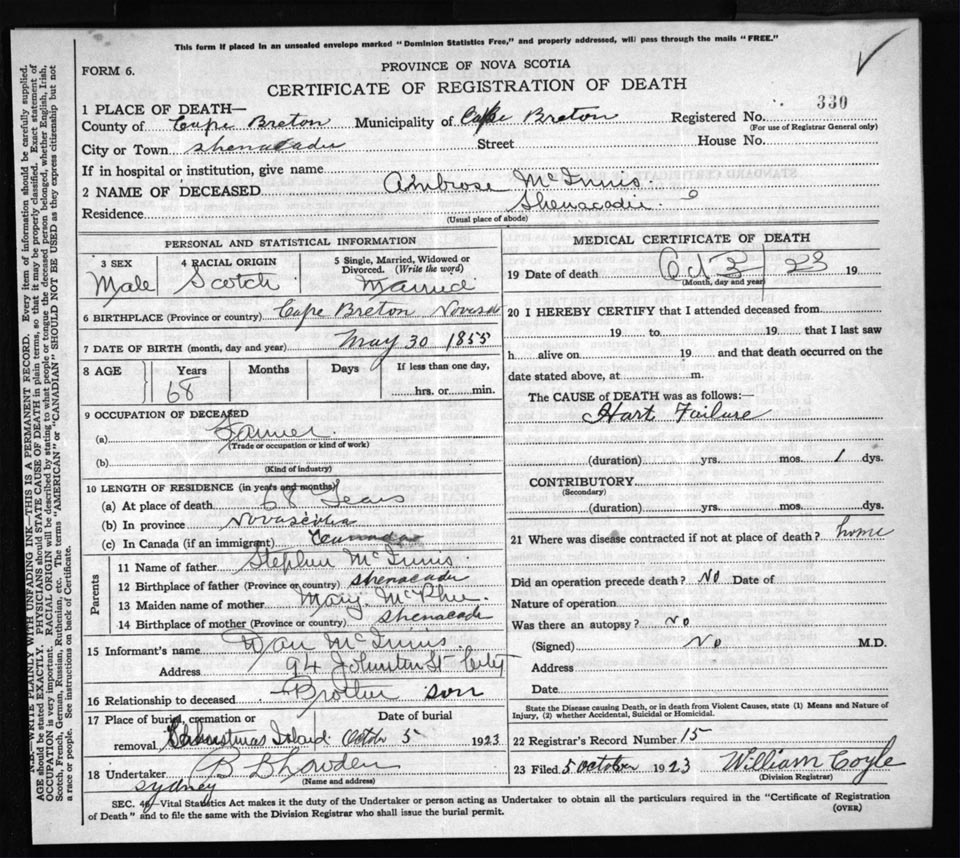 This form if placed in an unsealed envelope marked "Dominion Statistics Free," and properly addressed, will pass through the mails "FREE."
FORM 6.
PROVINCE OF NOVA SCOTIA
CERTIFICATE OF REGISTRATION OF DEATH
1 PLACE OF DEATH—
Registered No. 330
County of Cape Breton Municipality of Cape Breton
(For use of Registrar General only)
City or Town Shenacadie Street House No.
If in hospital or institution, give name
2 NAME OF DECEASED Ambrose McInnis.
Residence Shenacadie
(Usual place of abode)
PERSONAL AND STATISTICAL INFORMATION
3 SEX 4 RACIAL ORIGIN 5 Single, Married, Widowed or Divorced. (Write the word)
Male Scotch Married
6 BIRTHPLACE (Province or country) Cape Breton
7 DATE OF BIRTH (month, day and year) May 30 1855
8 AGE Years Months Days If less than one day,
68 hrs. or min.
9 OCCUPATION OF DECEASED
(a) Farmer
(Trade or occupation or kind of work)
(b)
(Kind of industry)
10 LENGTH OF RESIDENCE (in years and months)
(a) At place of death 68 Years
(b) In province Novascotia
(c) In Canada (if an immigrant)
Parents
11 Name of father Stephen McInnis.
12 Birthplace of father (Province or country) Shenacadie
13 Maiden name of mother Mary McPhee.
14 Birthplace of mother (Province or country) Shenacadie
15 Informant's name Dan McInnis
Address 94 Johnston St City
16 Relationship to deceased Brother son
17 Place of burial, cremation or Date of burial
removal Christmas Island Octobr 5 1923
18 Undertaker
(Name and address)
Sydney
MEDICAL CERTIFICATE OF DEATH
19 Date of death Oct 3 23 19
(Month, day and year)
20 I HEREBY CERTIFY that I attended deceased from
19 to 19 that I last saw
h alive on 19 and that death occurred on the
date stated above, at m.
The CAUSE of DEATH was as follows:—
Hart Failure
(duration) yrs. mos. 1 dys.
CONTRIBUTORY
(Secondary)
(duration) yrs. mos. dys.
21 Where was disease contracted if not at place of death? home
Did an operation precede death? No Date of
Nature of operation
Was there an autopsy? No
(Signed) No M.D.
Address
Date
State the Disease causing Death, or in death from Violent Causes, state (1) Means and Nature of
Injury, (2) whether Accidental, Suicidal or Homicidal.
22 Registrar's Record Number 15
23 Filed 5 October 1923 William Coyle
(Division Registrar)
SEC. Vital Statistics Act makes it the duty of the Undertaker or person acting as Undertaker to obtain all the particulars required in the "Certificate of Registration
of Death" and to file the same with the Division Registrar who shall issue the burial permit.
(OVER)
N.B.—WRITE PLAINLY WITH UNFADING INK—THIS IS A PERMANENT RECORD. Every item of information should be carefully supplied.
AGE should be stated EXACTLY. PHYSICIANS should STATE CAUSE OF DEATH in plain terms, so that it may be properly classified. Exact statement of
OCCUPATION is very important. RACIAL ORIGIN will be described by stating to what people or tongue the deceased person belonged, whether English, Irish,
Scotch, French, German, Russian, Ruthenian, etc. The terms "AMERICAN" or "CANADIAN" SHOULD NOT BE USED as they express citizenship but not
a race or people. See instructions on back of Certificate.